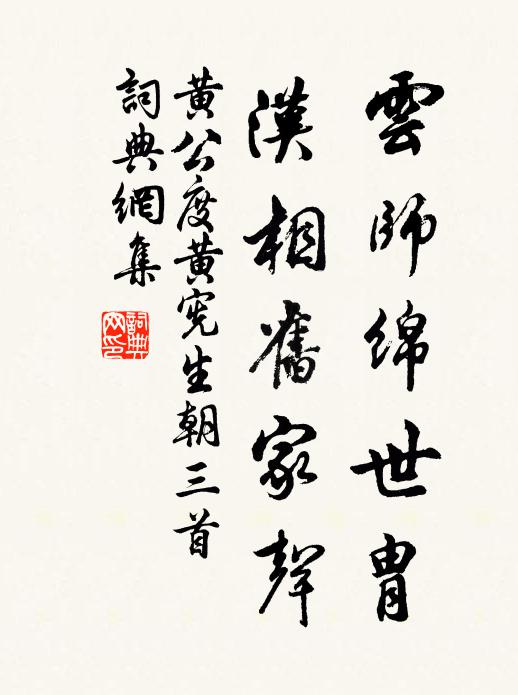 雲師綿世胄
漢相舊家聲
黄公度黄宪生朝三首
詞典網集
詞典网印